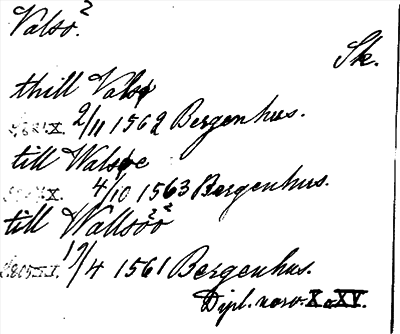 Valsö.²
Sk.
thill Valsø
2/11 1562 Bergenhus.
till Walsøe
4/10 1563 Bergenhus.
till Wallsöö
19/4 1561 Bergenhus.
Dipl. norv. X o XV.